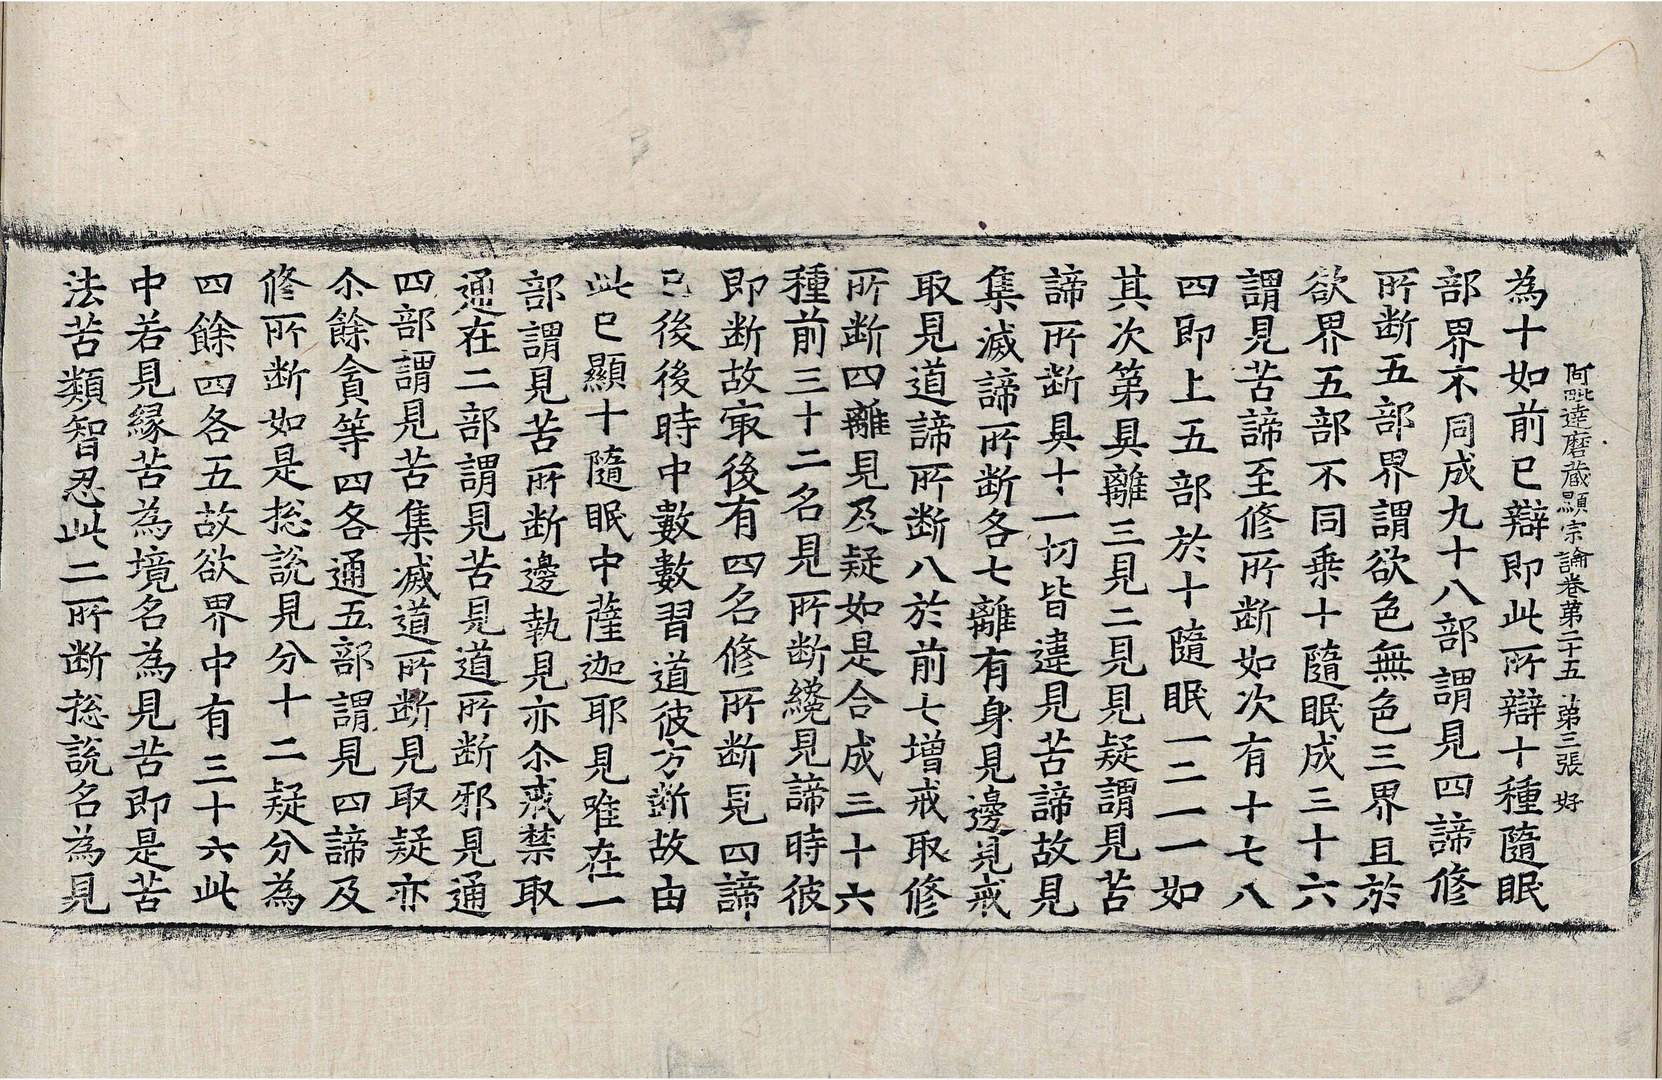 阿毗達磨蔵顯宗論卷第二十五 第三張 好
為十如前已辯即此所辯十種隨眠
部界不同成九十八部謂見四諦修
所断五部界謂欲色無色三界且於
欲界五部不同乗十隨眠成三十六
謂見苦諦至修所断如次有十七八
四即上五部於十隨眠一二一一如
其次第具離三見二見見疑謂見苦
諦所断具十一切皆違見苦諦故見
集滅諦所断各七離有身見邊見戒
取見道諦所断八於前七增戒取修
所断四離見及疑如是合成三十六
種前三十二名見所断纔見諦時彼
即断故㝡後有四名修所断見四諦
已後後時中數數習道彼方断故由
此已顯十隨眠中薩迦耶見唯在一
部謂見苦所断邊執見亦尒戒禁取
通在二部謂見苦見道所断邪見通
四部謂見苦集滅道所断見取疑亦
尒餘貪等四各通五部謂見四諦及
修所断如是捴說見分十二疑分為
四餘四各五故欲界中有三十六此
中若見縁苦為境名為見苦即是苦
法苦類智忍此二所断捴說名為見